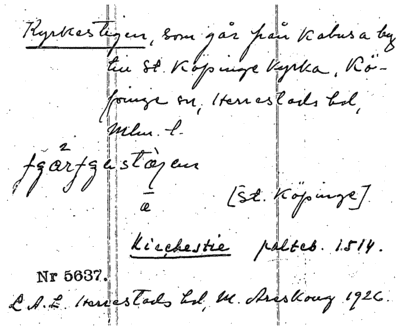 Kyrkestigen, som går från Kabusa by
till St. Köpinge kyrka, Kö-
pinge sn, Herrestads hd,
Mlm. l.
[St. Köpinge]
Kirchestie palteb. 1514.
Nr 5637.
L.A.L. Herrestads hd, M. Areskoug 1926.